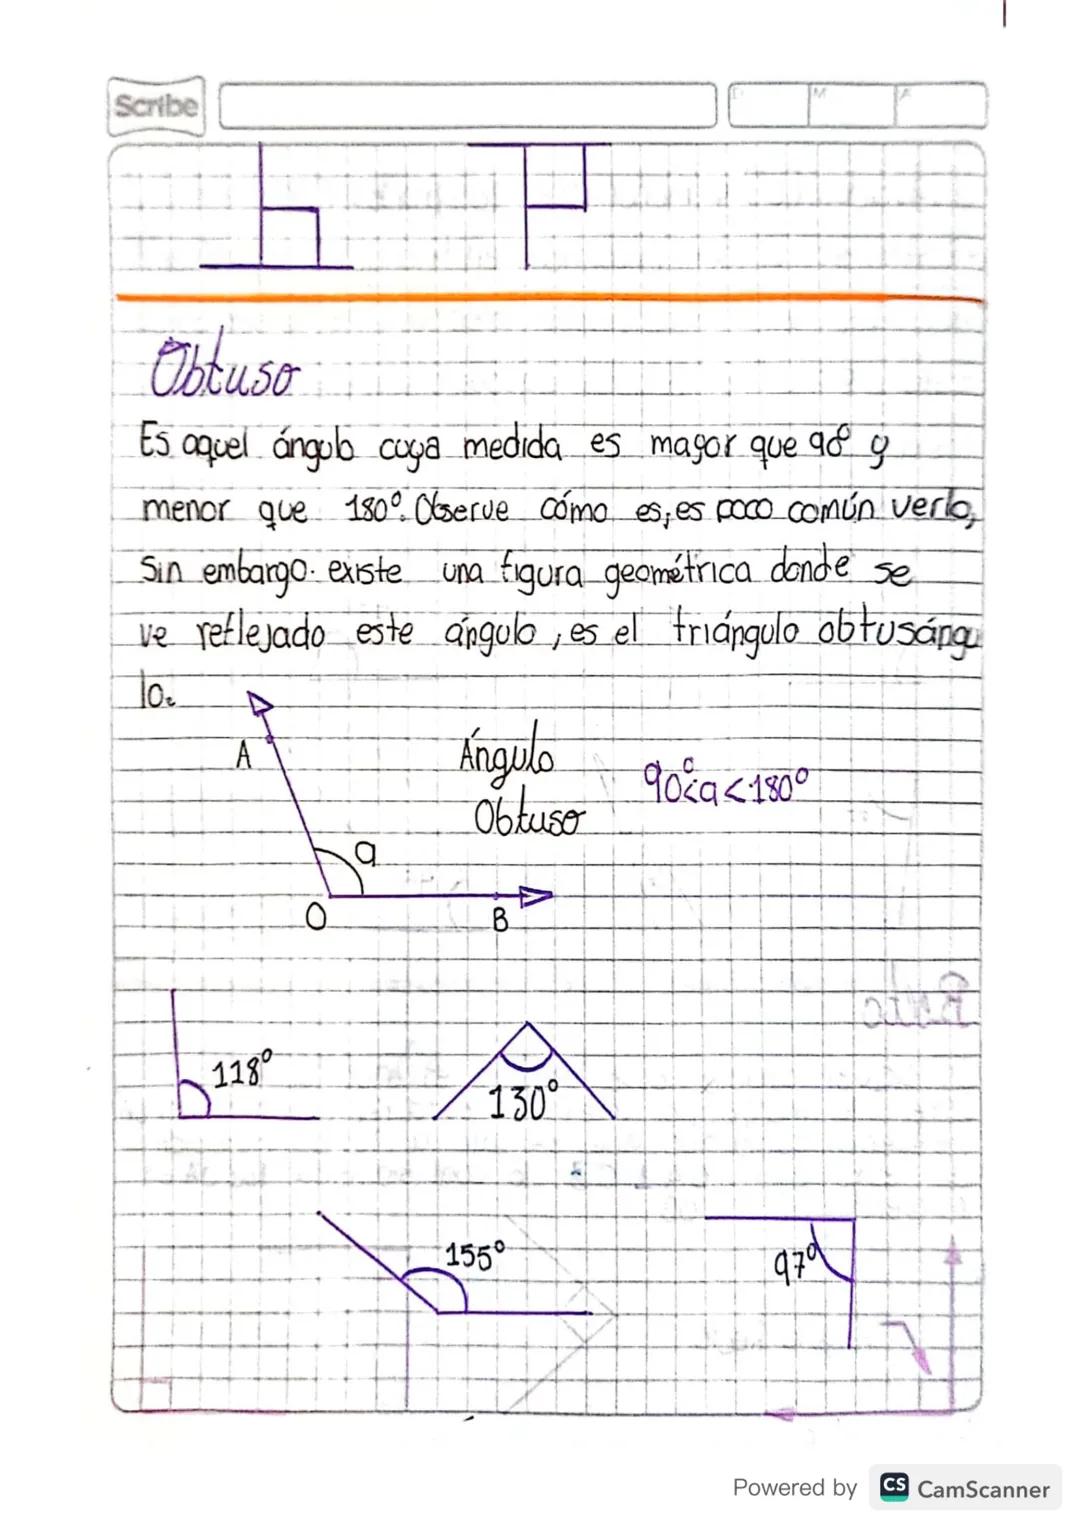 Scribe
D M A
Obtuso
Es aquel ángulo cuya medida es mayor que 90° y
menor que 180°. Observe cómo es, es poco común verlo,
Sin embargo. existe una figura geométrica donde se
ve reflejado este ángulo, es el triángulo obtusángu
lo.
A
Ángulo
Obtuso
90°<a<180°
a
O
B
118°
130°
155°
97°
Powered by CS CamScanner